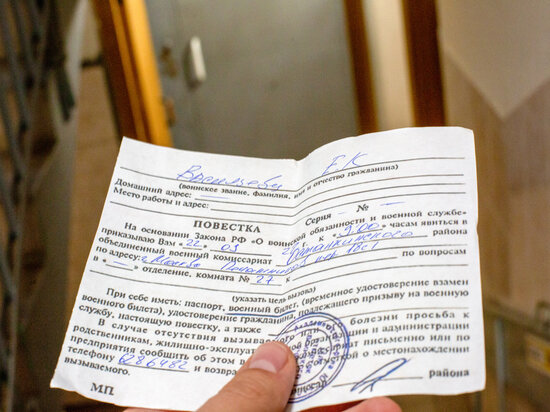 Е. К.
(воинское звание, фамилия, имя и отчество гражданина)
Домашний адрес:
Место работы и адрес:
ПОВЕСТКА
Серия № —
На основании Закона РФ «О воинской обязанности и военной службе»
приказываю Вам «22» 03 к 9.00 часам явиться в
объединенный военный комиссариат Останкинского района
по адресу: г. Москва по вопросам
в «—» отделение, комната № 27 к
(указать цель вызова)
При себе иметь: паспорт, военный билет, (временное удостоверение взамен
военного билета), удостоверение гражданина, подлежащего призыву на военную
службу, настоящую повестку, а также
В случае отсутствия вызываемого или болезни просьба к
родственникам, жилищно- и администрации
предприятия сообщить об этом письменно или по
телефону и о местонахождении
вызываемого.
района
МП